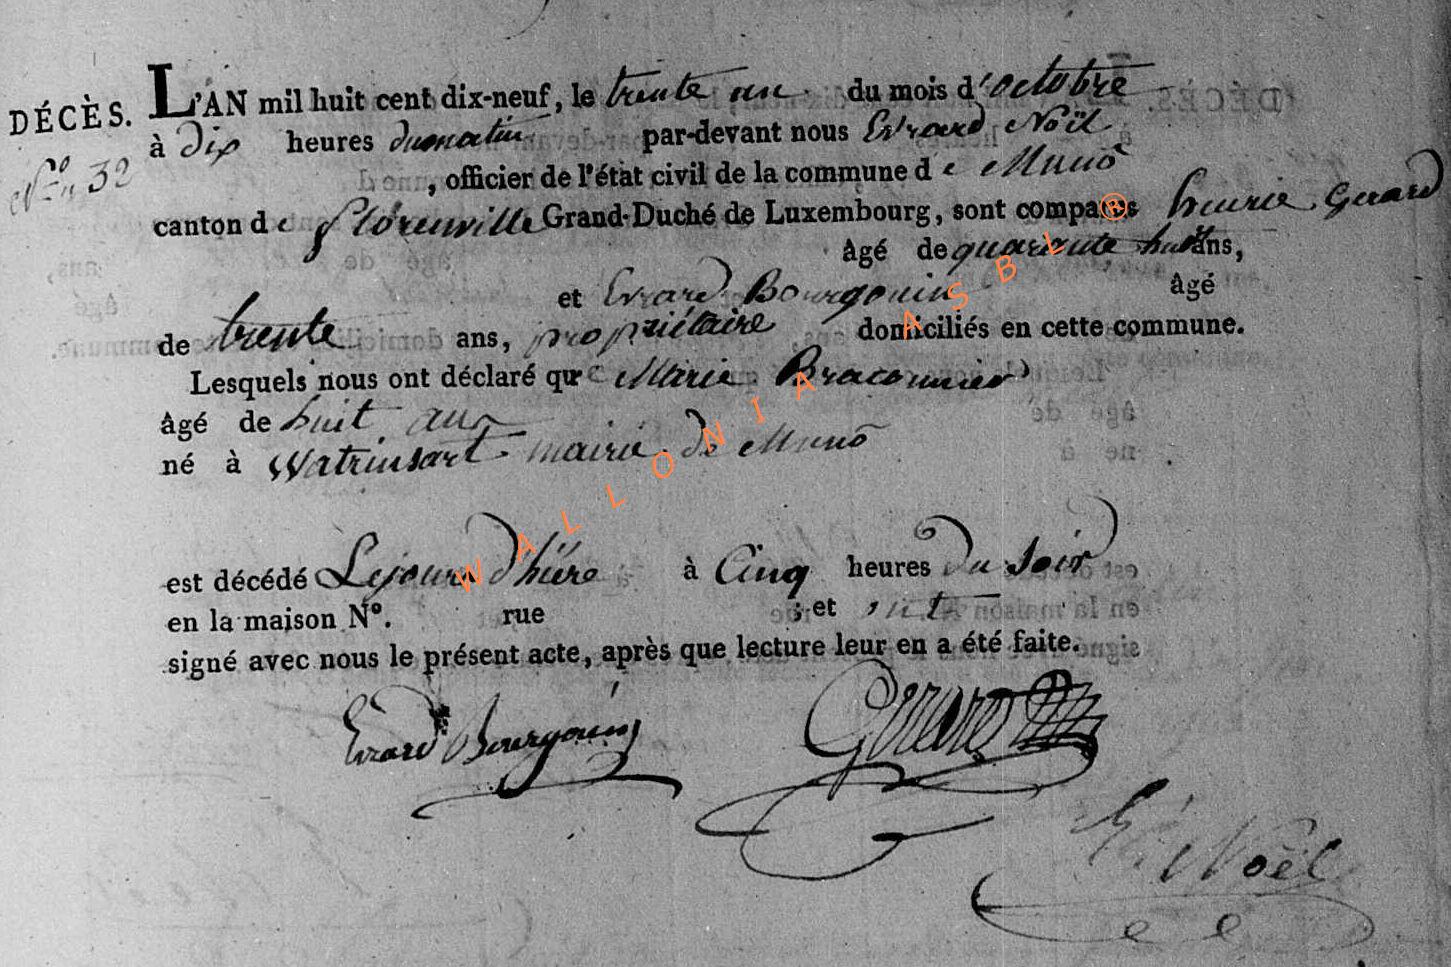 DÉCÈS.
N.º 32
L'AN mil huit cent dix-neuf, le trente un du mois d'octobre
à dix heures du matin par-devant nous Evrard Noël
, officier de l'état civil de la commune de Muno
canton de florenville Grand-Duché de Luxembourg, sont comparus henrie Gerard
âgé de quarante huit ans,
et Evrard Bourgouin âgé
de trente ans, propriétaire domiciliés en cette commune.
Lesquels nous ont déclaré que Marie Braconnier
âgé de huit ans
né à Watrinsart mairie de Muno
est décédé Lejour d'hiére à Cinq heures du Soir
en la maison Nº. rue ; et ont
signé avec nous le présent acte, après que lecture leur en a été faite.
Evrard Bourgouin Gerard
Ed Noël
WALLONIA ASBL ®